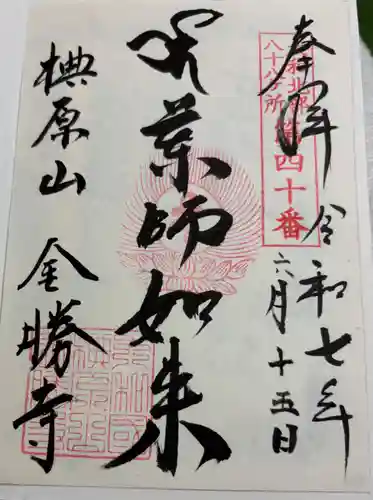 奉拝 令和七年
六月十五日
八十八ヶ所 第四十番
薬師如来
椣原山 金勝寺